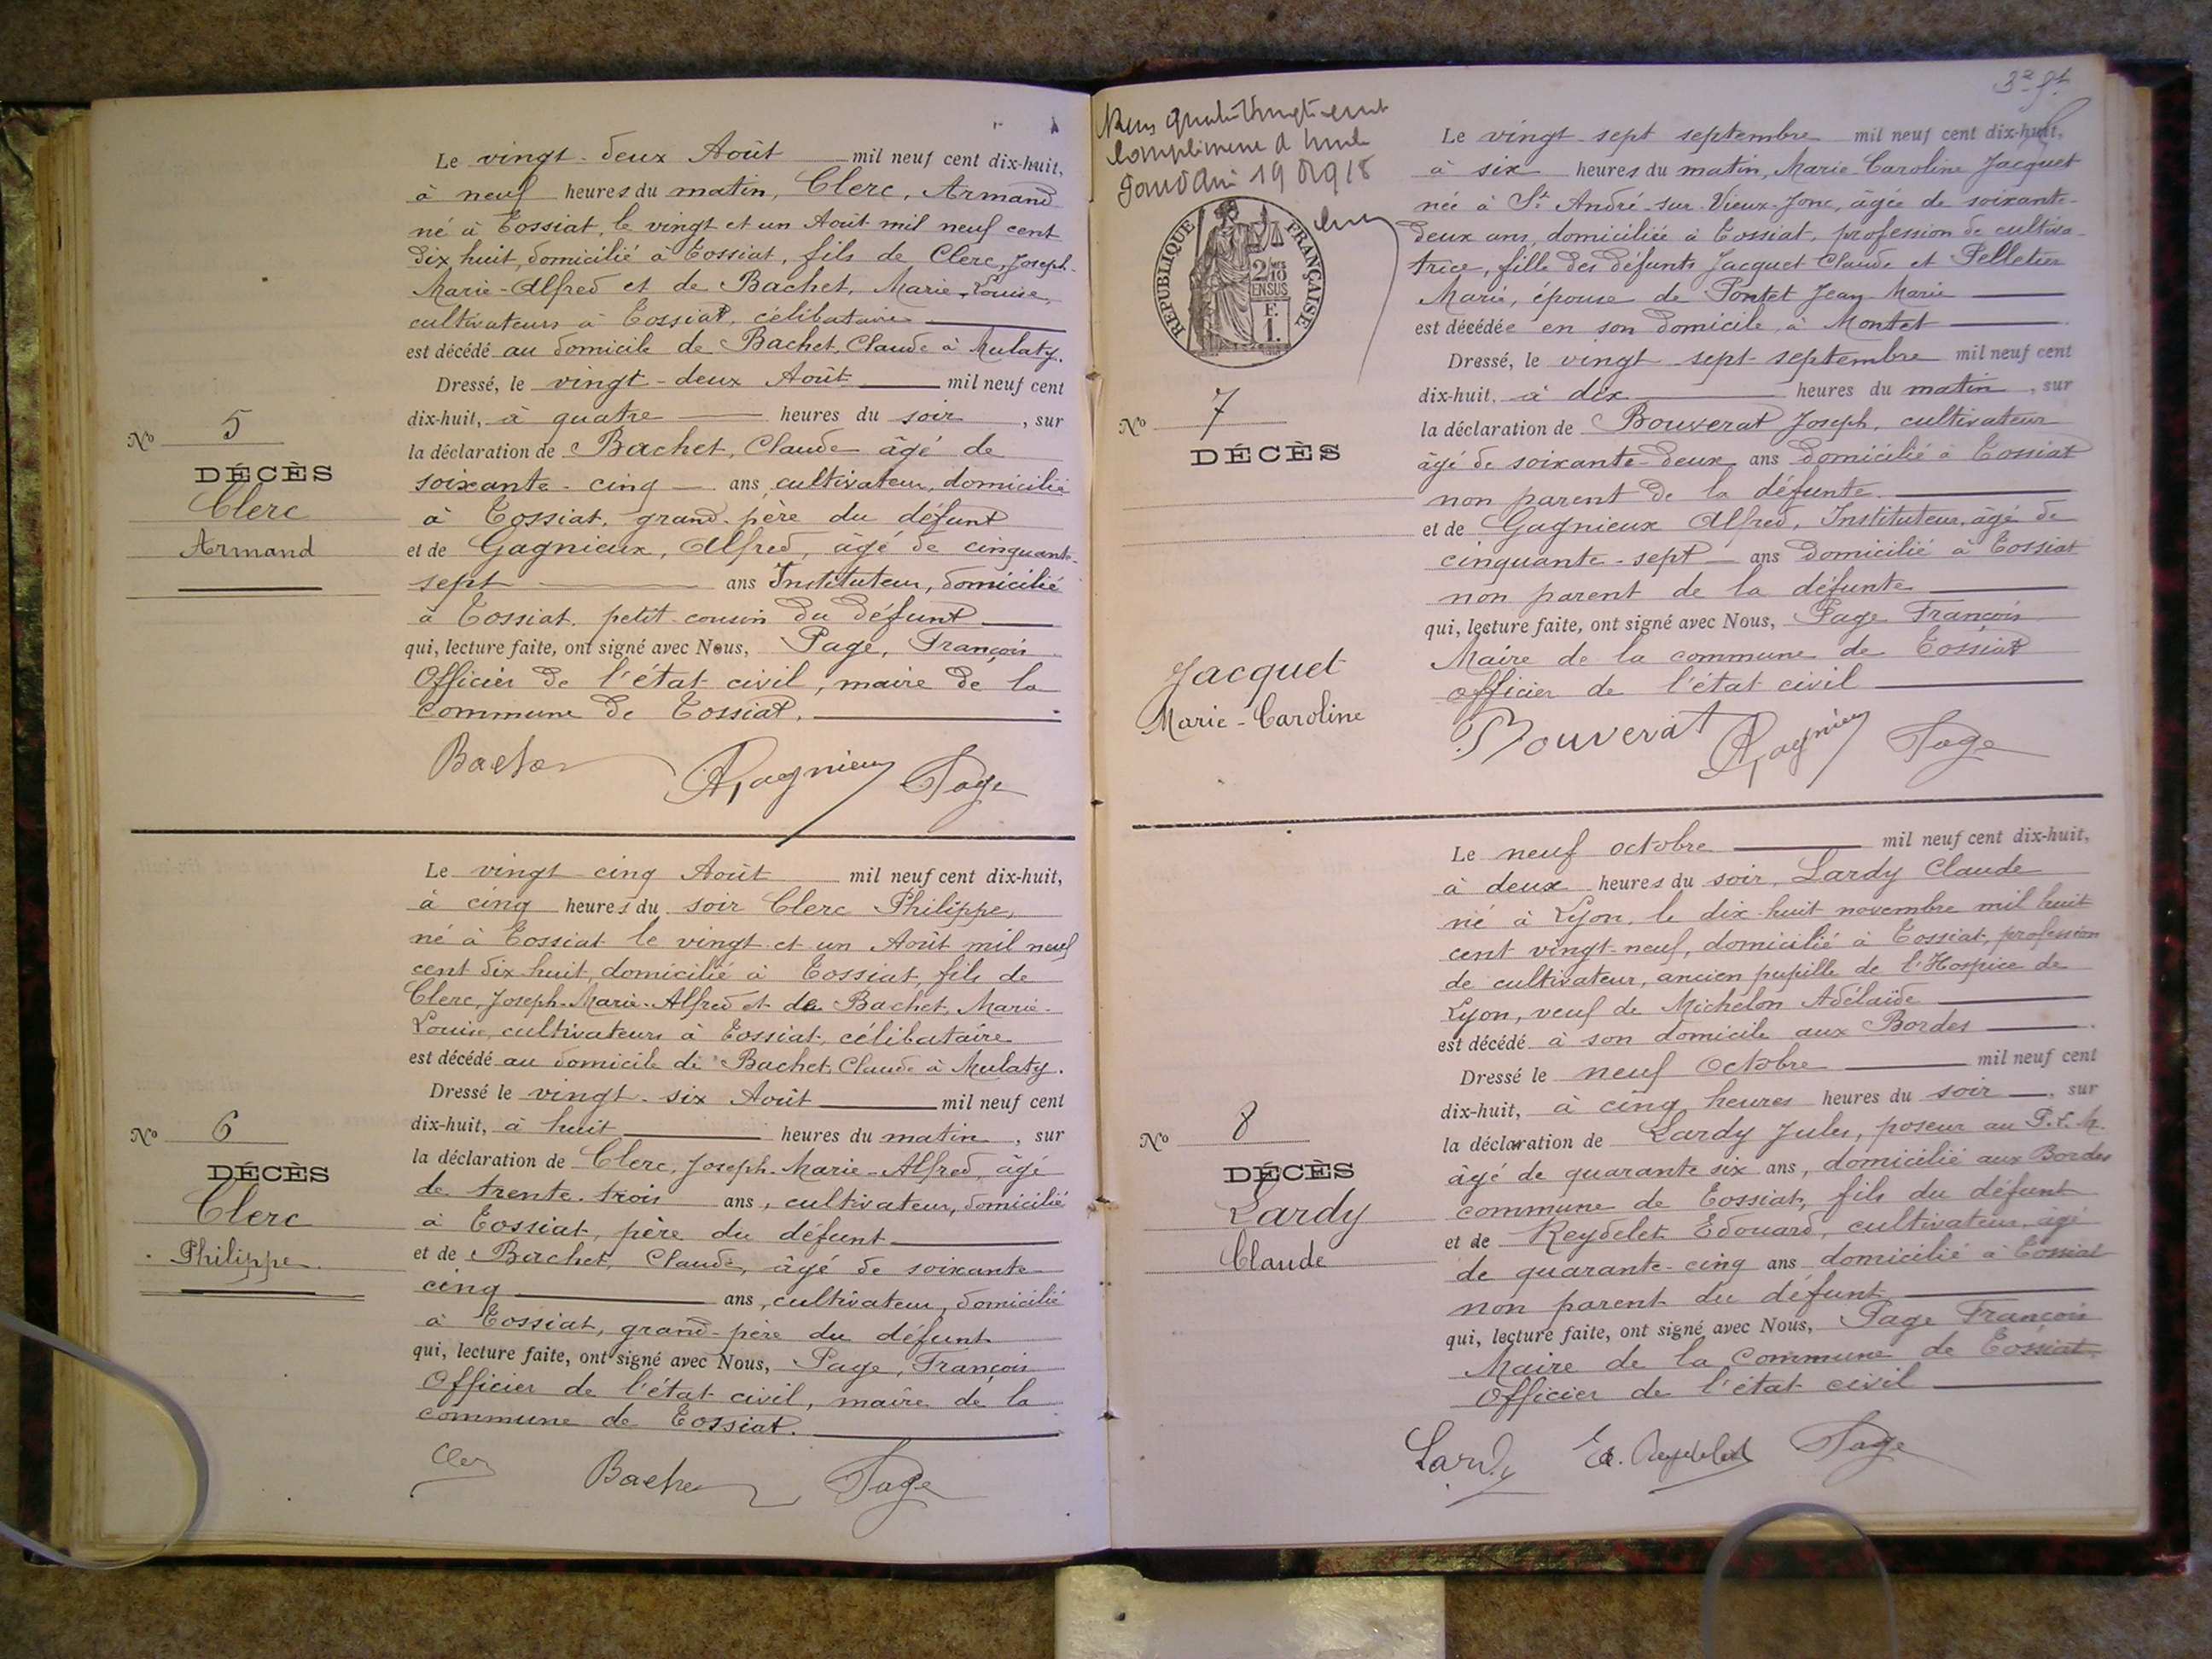 Le vingt-deux Août mil neuf cent dix-huit,
à neuf heures du matin, Clerc, Armand
né à Tossiat, le vingt et un Août mil neuf cent
dix huit, domicilié à Tossiat, fils de Clerc, Joseph-
Marie-Alfred et de Bachet, Marie-Louise,
cultivateurs à Tossiat, célibataire
est décédé au domicile de Bachet, Claude à Mulaty.
Dressé, le vingt-deux Août mil neuf cent
dix-huit, à quatre heures du soir, sur
la déclaration de Bachet, Claude âgé de
soixante-cinq ans, cultivateur, domicilié
à Tossiat, grand-père du défunt
et de Gagnieux, Alfred, âgé de cinquante-
sept ans Instituteur, domicilié
à Tossiat, petit-cousin du défunt
qui, lecture faite, ont signé avec Nous, Page, François
Officier de l'état civil, maire de la
commune de Tossiat.
Bachet AGagnieux Page
No 5
DÉCÈS
Clerc
Armand
Le vingt cinq Août mil neuf cent dix-huit,
à cinq heures du soir Clerc Philippe,
né à Tossiat le vingt et un Août mil neuf
cent dix huit, domicilié à Tossiat, fils de
Clerc, Joseph-Marie-Alfred et de Bachet, Marie-
Louise, cultivateurs à Tossiat, célibataire
est décédé au domicile de Bachet, Claude à Mulaty.
Dressé le vingt-six Août mil neuf cent
dix-huit, à huit heures du matin, sur
la déclaration de Clerc, Joseph-Marie-Alfred, âgé
de trente-trois ans, cultivateur, domicilié
à Tossiat, père du défunt
et de Bachet, Claude, âgé de soixante-
cinq ans, cultivateur, domicilié
à Tossiat, grand-père du défunt
qui, lecture faite, ont signé avec Nous, Page, François
Officier de l'état civil, maire de la
commune de Tossiat.
Clerc Bachet Page
No 6
DÉCÈS
Clerc
Philippe
19
RÉPUBLIQUE FRANÇAISE
2/10
EN SUS
F.
1.
Le vingt-sept septembre mil neuf cent dix-huit,
à six heures du matin, Marie-Caroline Jacquet
née à St André-sur-Vieux-Jonc, âgée de soixante-
deux ans, domiciliée à Tossiat, profession de cultiva-
trice, fille des défunts Jacquet Claude et Pelletier
Marie, épouse de Pontet Jean-Marie
est décédée en son domicile, à Montet
Dressé, le vingt-sept septembre mil neuf cent
dix-huit, à dix heures du matin, sur
la déclaration de Bouverat Joseph, cultivateur
âgé de soixante-deux ans domicilié à Tossiat
non parent de la défunte.
et de Gagnieux Alfred, Instituteur, âgé de
cinquante-sept ans domicilié à Tossiat
non parent de la défunte
qui, lecture faite, ont signé avec Nous, Page François
Maire de la commune de Tossiat
officier de l'état civil
Bouverat AGagnieux Page
No 7
DÉCÈS
Jacquet
Marie-Caroline
Le neuf octobre mil neuf cent dix-huit,
à deux heures du soir, Lardy Claude
né à Lyon, le dix-huit novembre mil huit
cent vingt-neuf, domicilié à Tossiat, profession
de cultivateur, ancien pupille de l'Hospice de
Lyon, veuf de Michelon Adélaïde
est décédé à son domicile aux Bordes
Dressé le neuf Octobre mil neuf cent
dix-huit, à cinq heures heures du soir, sur
la déclaration de Lardy Jules, poseur au P.L.M.
âgé de quarante six ans, domicilié aux Bordes
commune de Tossiat, fils du défunt
et de Reydelet Edouard, cultivateur, âgé
de quarante-cinq ans domicilié à Tossiat
non parent du défunt
qui, lecture faite, ont signé avec Nous, Page François
Maire de la Commune de Tossiat,
Officier de l'état civil
Lardy E. Reydelet Page
No 8
DÉCÈS
Lardy
Claude